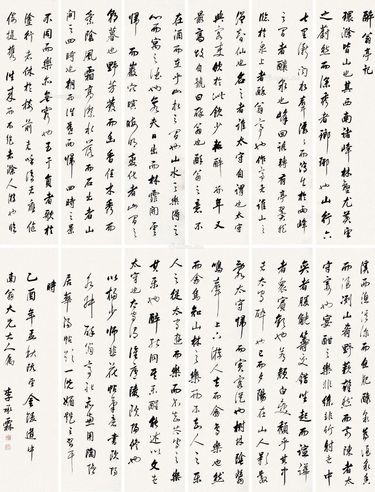 醉翁亭記
環滁皆山也其西南諸峰林壑尤美望
之蔚然而深秀者瑯琊也山行六
七里漸聞水聲潺潺而瀉出於兩峰
之間者釀泉也峰回路轉有亭翼然
臨於泉上者醉翁亭也作亭者誰山之
僧智仙也名之者誰太守自謂也太守
與客來飲於此飲少輒醉而年又
最高故自號曰醉翁也醉翁之意不
在酒而在乎山水之間也山水之樂得之
心而寓之酒也若夫日出而林霏開雲
歸而巖穴暝晦明變化者山間之
朝暮也野芳發而幽香佳木秀而
繁陰風霜高潔水落而石出者山
間之四時也朝而往暮而歸四時之景
不同而樂亦無窮也至于負者歌於
塗行者休於樹前者呼後者應傴
僂提攜往來而不絕者滁人遊也臨
溪而漁溪深而魚肥釀泉為酒泉香
而酒冽山肴野蔌雜然而前陳者太
守宴也宴酣之樂非絲非竹射者中
奕者勝觥籌交錯起坐而諠譁
者衆賓歡也蒼顏白髮頹乎其中
者太守醉也已而夕陽在山人影散
亂太守歸而賓客從也樹林陰翳
鳴聲上下遊人去而禽鳥樂也然
而禽鳥知山林之樂而不知人之樂
人知從太守遊而樂而不知太守之樂
其樂也醉能同其樂醒能述以文者
太守也太守謂誰廬陵歐陽修也
以楊少師韭花帖筆意書歐陽
永叔醉翁亭記
時
己酉年孟秋既望金陵道中
南翁大兄大人屬
李承霖